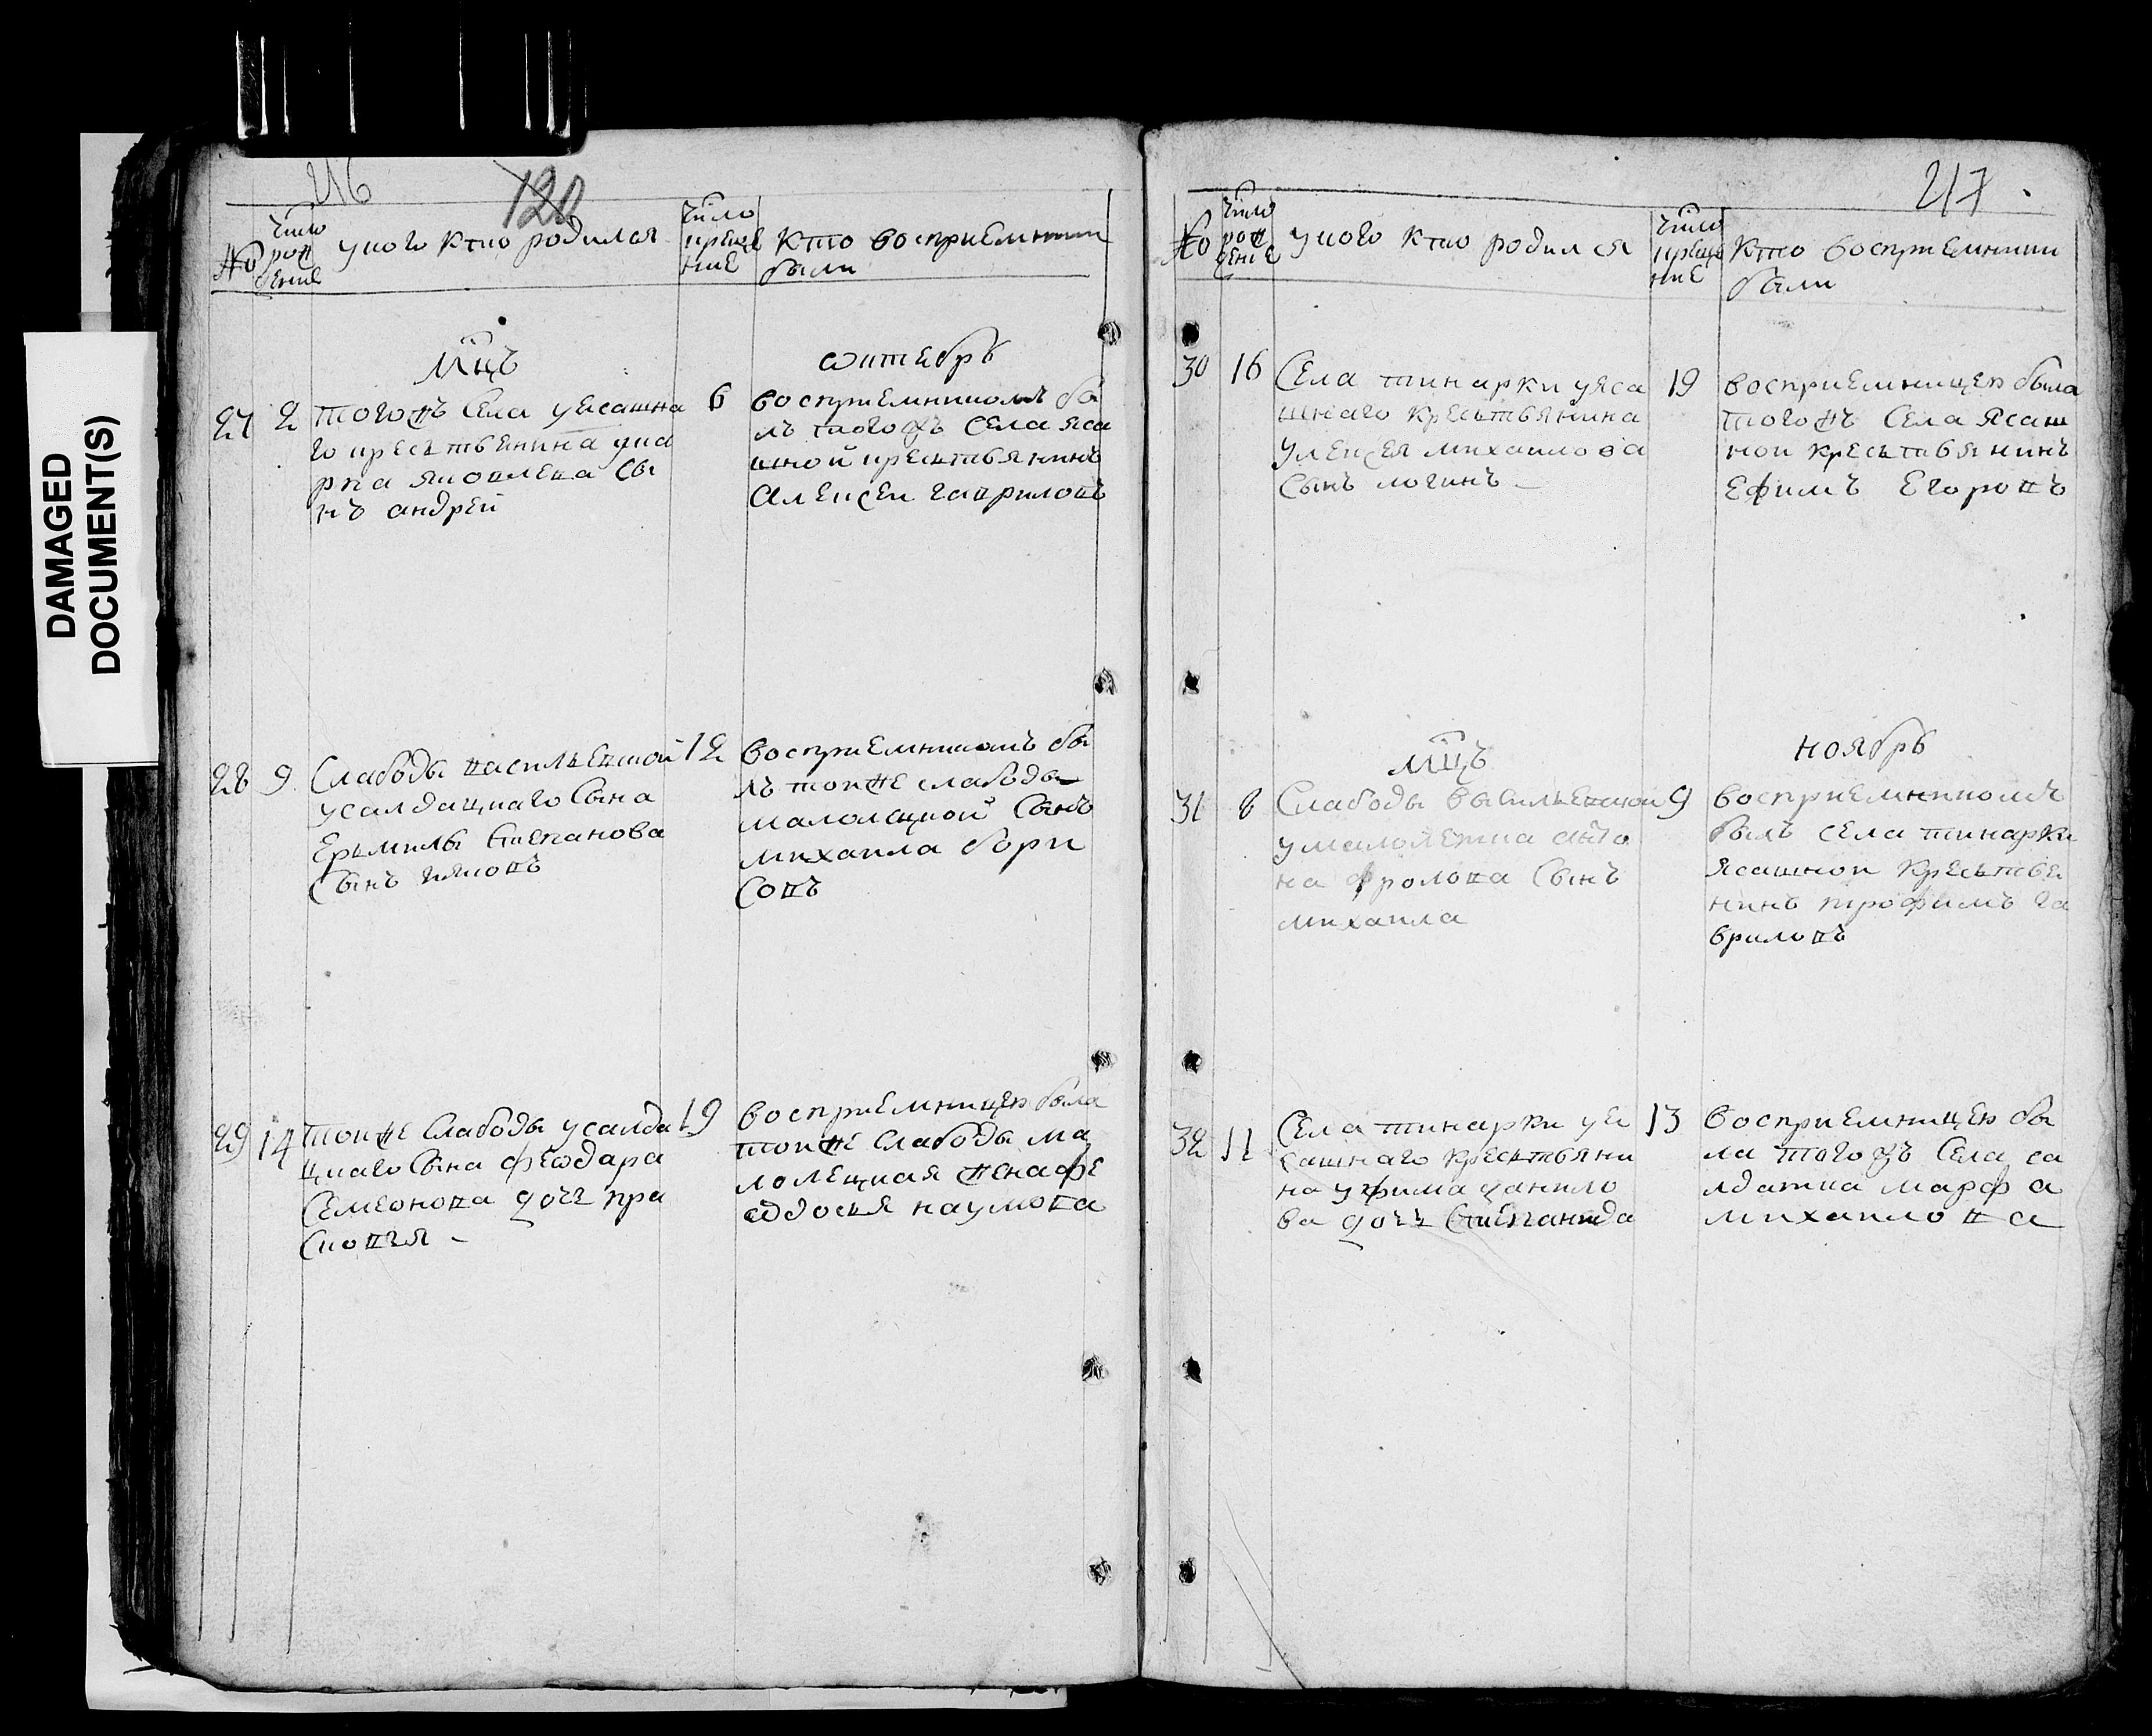 DAMAGED
DOCUMENT(S)
216
120
№
число
рож
дение
у кого кто родился
число
креще
ние
кто восприемники
были
мцъ
октебрь
27
2
тогожъ села у ясашна
го крестьенина ума
рка яковлева сы
нъ андрей
6
восприемникомъ бы
лъ тогожъ села яса
шной крестьянинъ
Алексеи гавриловъ
28
9
Слабоды васильевской
у салдацкаго сына
Ермилы степанова
сынъ ияковъ
12
восприемникомъ бы
лъ тойже слабоды
малолецкой сынъ
михаила бори
совъ
29
14
тойже слабоды у салда
цкаго сына феодара
Семионова дочь пра
сковья
19
восприемницею была
тойже слабоды ма
лолецкая жена фе
оддосья наумова
217
№
число
рож
дение
у кого кто родился
число
креще
ние
кто восприемники
были
30
16
Села тинарки у яса
шнаго крестьянина
улексея михаилова
сынъ логинъ
19
восприемницею была
тогожъ села ясаш
нои крестьянинъ
Ефимъ Егоровъ
мцъ
ноябрь
31
8
Слабоды васильевской
у малолетка анто
на фролова сынъ
михаила
9
восприемникомъ
былъ села тинарки
ясашнои крестье
нинъ трофимъ га
вриловъ
32
11
Села тинарки у еи
сашнаго крестьяни
на уфима данило
ва дочь степанида
13
восприемницею бы
ла тогожъ села са
лдатка марфа
михаилова